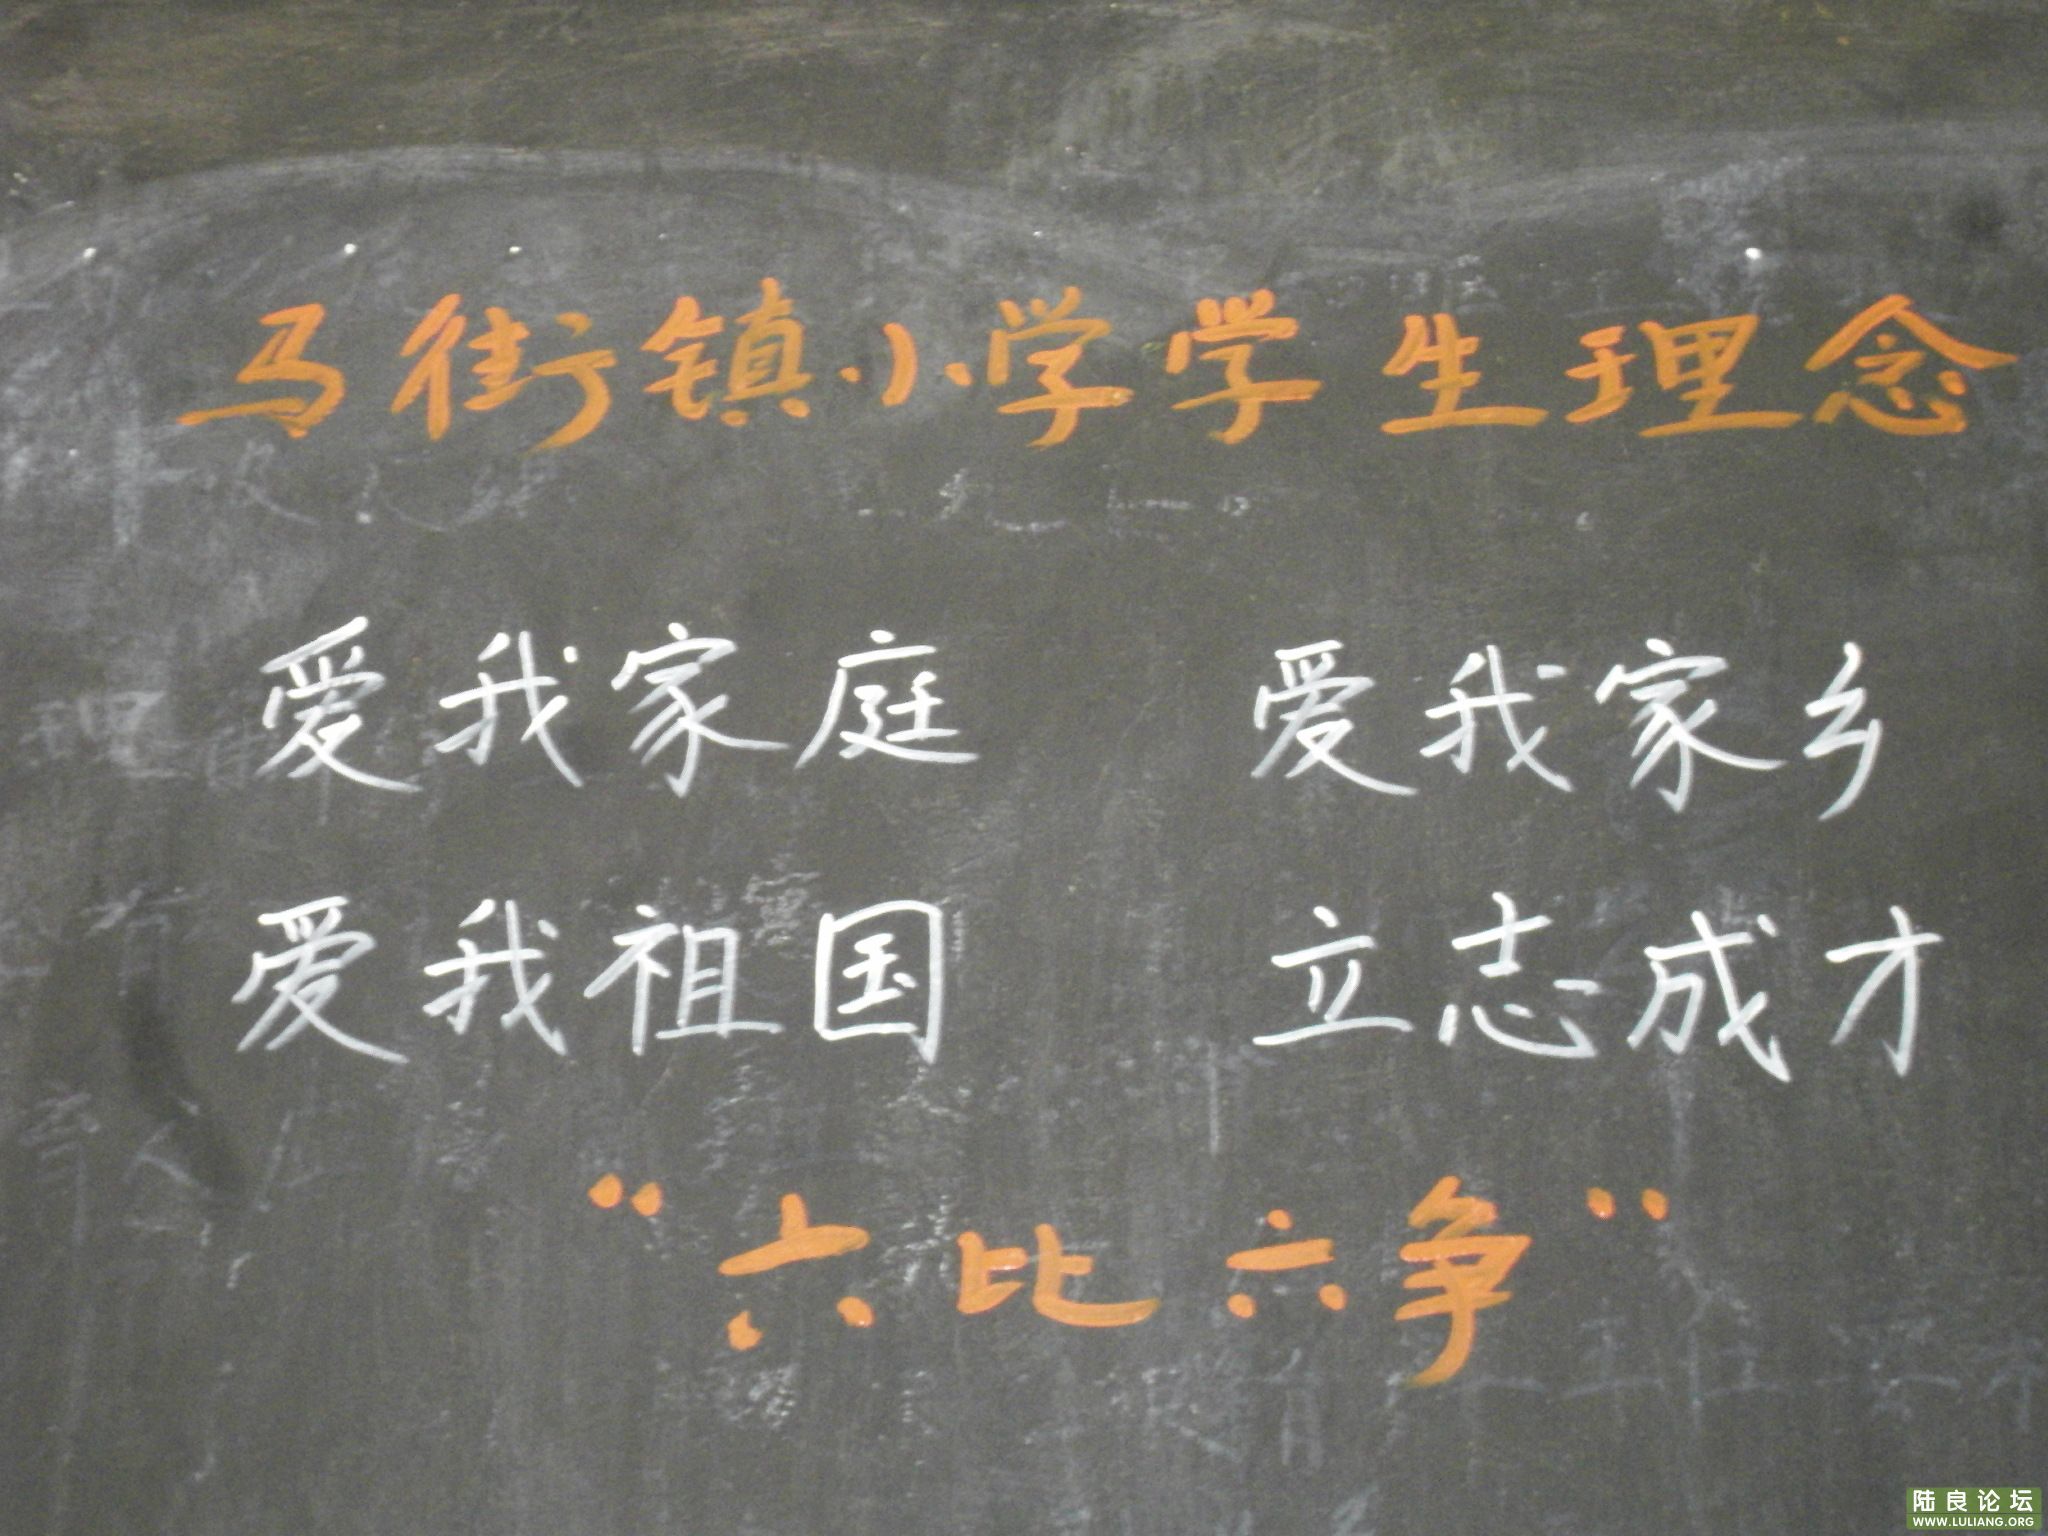 马街镇小学学生理念
爱我家庭 爱我家乡
爱我祖国 立志成才
“六比六争”
陆良论坛
WWW.LULIANG.ORG